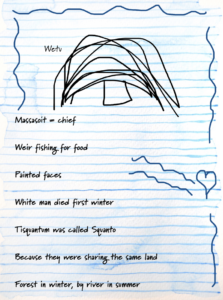 Wetu
Massasoit = chief
Weir fishing for food
Painted faces
White man died first winter
Tisquantum was called Squanto
Because they were sharing the same land
Forest in winter, by river in summer